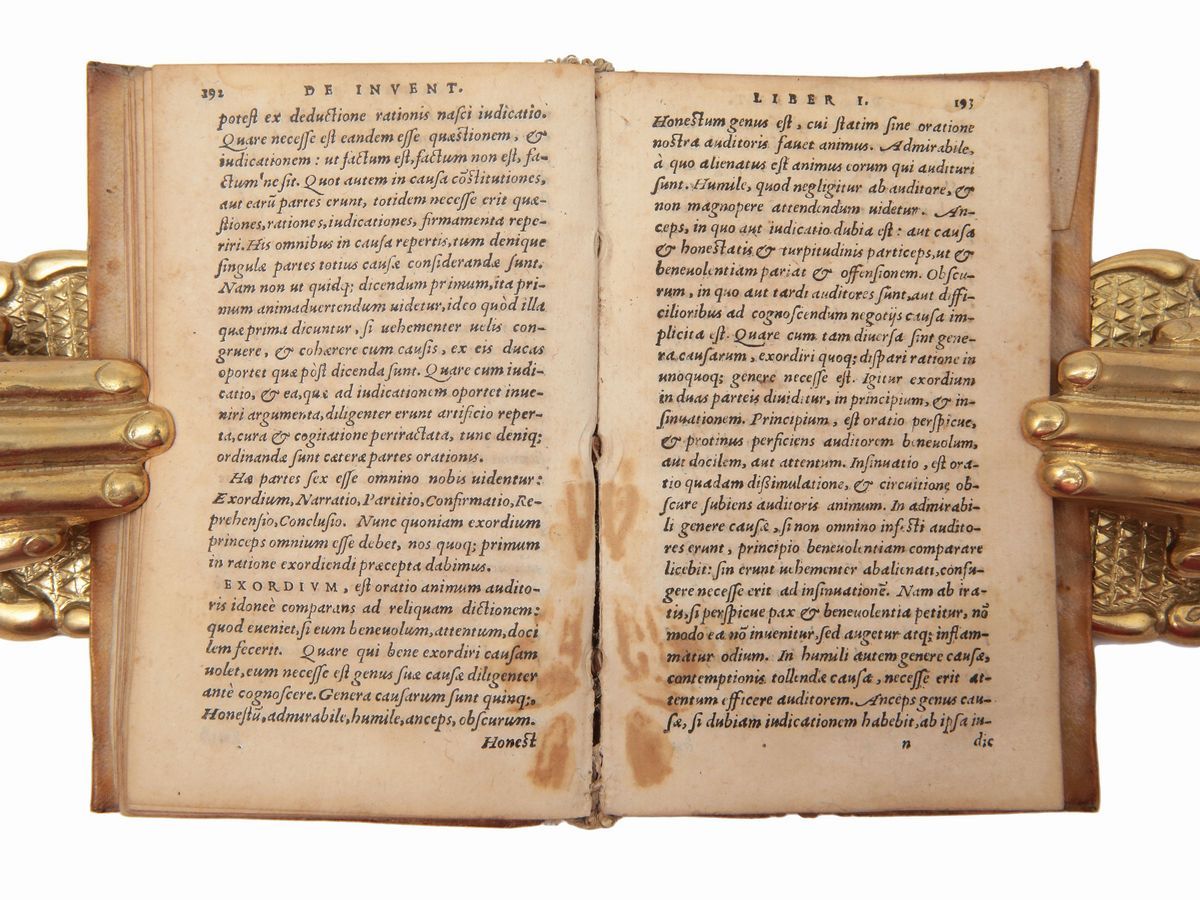 192 DE INVENT.
potest ex deductione rationis nasci iudicatio.
Quare necesse est eandem esse quæstionem, &
iudicationem: ut factum est, factum non est, fa-
ctum'ne sit. Quot autem in causa cōstitutiones,
aut earū partes erunt, totidem necesse erit quæ-
stiones, rationes, iudicationes, firmamenta repe-
riri. His omnibus in causa repertis, tum denique
singulæ partes totius causæ considerandæ sunt.
Nam non ut quidq; dicendum primum, ita pri-
mum animaduertendum uidetur, ideo quòd illa
quæ prima dicuntur, si uehementer uelis con-
gruere, & cohærere cum causis, ex eis ducas
oportet quæ pòst dicenda sunt. Quare cum iudi-
catio, & ea, quæ ad iudicationem oportet inue-
niri argumenta, diligenter erunt artificio reper-
ta, cura & cogitatione pertractata, tunc deniq;
ordinandæ sunt cæteræ partes orationis.
Hæ partes sex esse omnino nobis uidentur:
Exordium, Narratio, Partitio, Confirmatio, Re-
prehensio, Conclusio. Nunc quoniam exordium
princeps omnium esse debet, nos quoq; primum
in ratione exordiendi præcepta dabimus.
EXORDIVM, est oratio animum audito-
ris idoneè comparans ad reliquam dictionem:
quod eueniet, si eum beneuolum, attentum, doci
lem fecerit. Quare qui bene exordiri causam
uolet, eum necesse est genus suæ causæ diligenter
antè cognoscere. Genera causarum sunt quinq;.
Honestū, admirabile, humile, anceps, obscurum.
Honest
LIBER I. 193
Honestum genus est, cui statim sine oratione
nostra auditoris fauet animus. Admirabile,
à quo alienatus est animus eorum qui audituri
sunt. Humile, quod negligitur ab auditore, &
non magnopere attendendum uidetur. An-
ceps, in quo aut iudicatio dubia est: aut causa
& honestatis & turpitudinis particeps, ut &
beneuolentiam pariat & offensionem. Obscu-
rum, in quo aut tardi auditores sunt, aut diffi-
cilioribus ad cognoscendum negotijs causa im-
plicita est. Quare cum tam diuersa sint gene-
ra causarum, exordiri quoq; dispari ratione in
unoquoq; genere necesse est. Igitur exordium
in duas parteis diuiditur, in principium, & in-
sinuationem. Principium, est oratio perspicue,
& protinus perficiens auditorem beneuolum,
aut docilem, aut attentum. Insinuatio, est ora-
tio quadam dißimulatione, & circuitione ob-
scure subiens auditoris animum. In admirabi-
li genere causæ, si non omnino infesti audito-
res erunt, principio beneuolentiam comparare
licebit: sin erunt uehementer abalienati, confu-
gere necesse erit ad insinuationē. Nam ab ira-
tis, si perspicue pax & beneuolentia petitur, nō
modo ea nō inuenitur, sed augetur atq; inflam-
matur odium. In humili autem genere causæ,
contemptionis tollendæ causa, necesse erit at-
tentum efficere auditorem. Anceps genus cau-
sæ, si dubiam iudicationem habebit, ab ipsa iu-
n dic